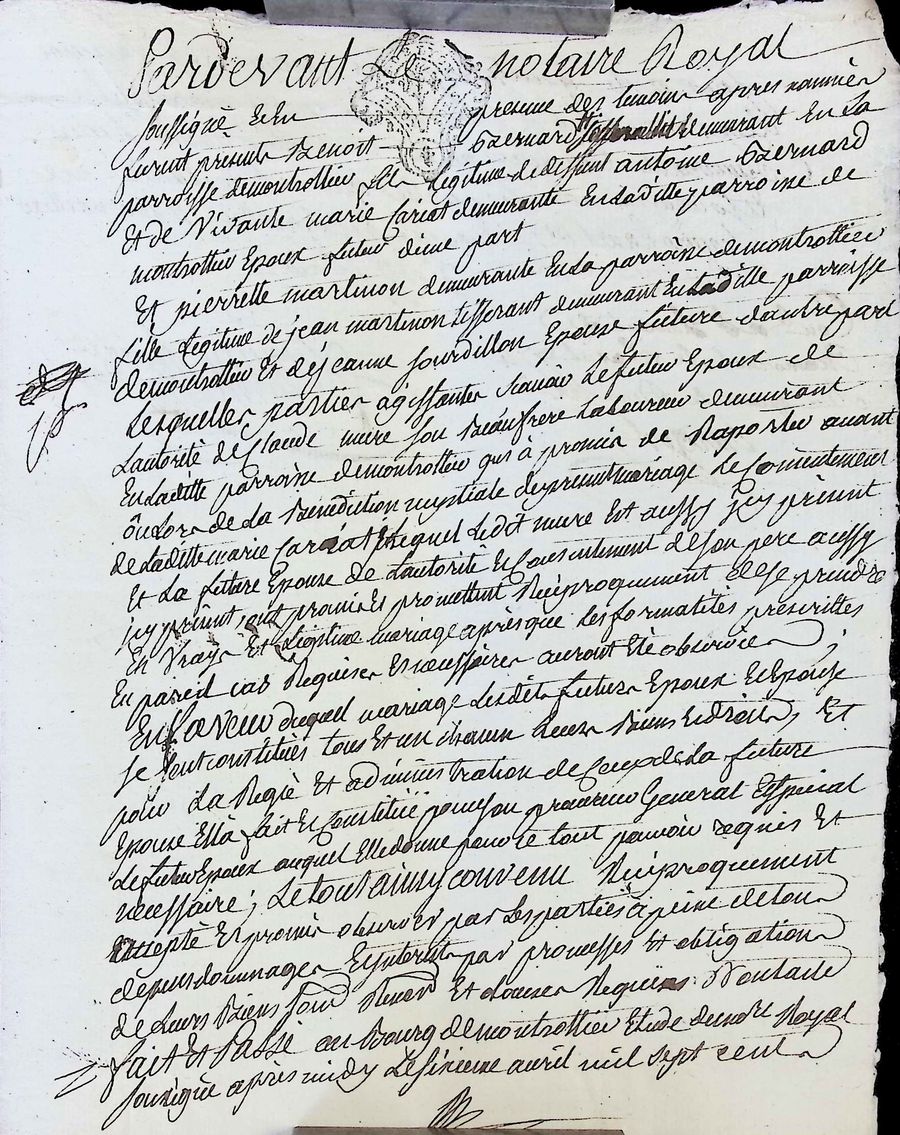 Pardevant Le notaire Royal
soussigné Et En presence des temoins apres nommés
furent presents Benoit Bernard demeurant En La
parroisse demontrottier fils Légitime de deffunt antoine Bernard
Et de Vivante marie Cariat demeurante En Laditte parroisse de
montrottier Epoux futur dune part
Et pierrette martinon demeurante En La parroisse demontrottier
fille Légitime de jean martinon tisserant demeurant En Laditte parroisse
demontrottier Et de jeanne sourdillon Epouse future dautre part
Lesquelles parties agissantes scavoir Le futur Epoux de
Lautorité de Claude mure son Beaufrere Laboureur demeurant
En Laditte parroisse demontrottier qui à promis de Raporter avant
ôu Lors de La Bénédiction nuptiale du present mariage Le Consentement
de Laditte marie Cariat Lequel Ledit mure Est aussy jcy présent
Et La future Epouse de Lautorité Et Consentement de son pere aussy
jcy présent, ont promis Et promettent Réciproquement de se prendre
En Vray Et Légitime mariage après que Les formalités prescrittes
En pareil cas Requises Et nécessaires auront Eté observées ;
En faveur duquel mariage Lesdits futurs Epoux Et Epouse
se sont constitués tous Et un chacun Leurs Biens Et droits, Et
pour La Regie Et administration de Ceux de La future
Epouse Elle à fait Et Constitué pour son procureur General Et spécial
Le futur Epoux auquel Elle donne pour ce tout pouvoir requis Et
nécessaire ; Le tout ainsy convenu Réciproquement
accepté Et promis observer par Les parties à peine de tous
dépens dommages Et interests par promesses Et obligations
de Leurs Biens Et clauses Requises : Dont acte
fait Et Passé au Bourg demontrottier Etude dudit notre Royal
soussigné apres midy Le sixieme avril mil sept cent